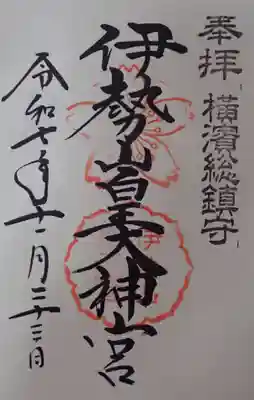 奉拝 横濱総鎮守
伊勢山皇大神宮
令和七年十一月二十三日